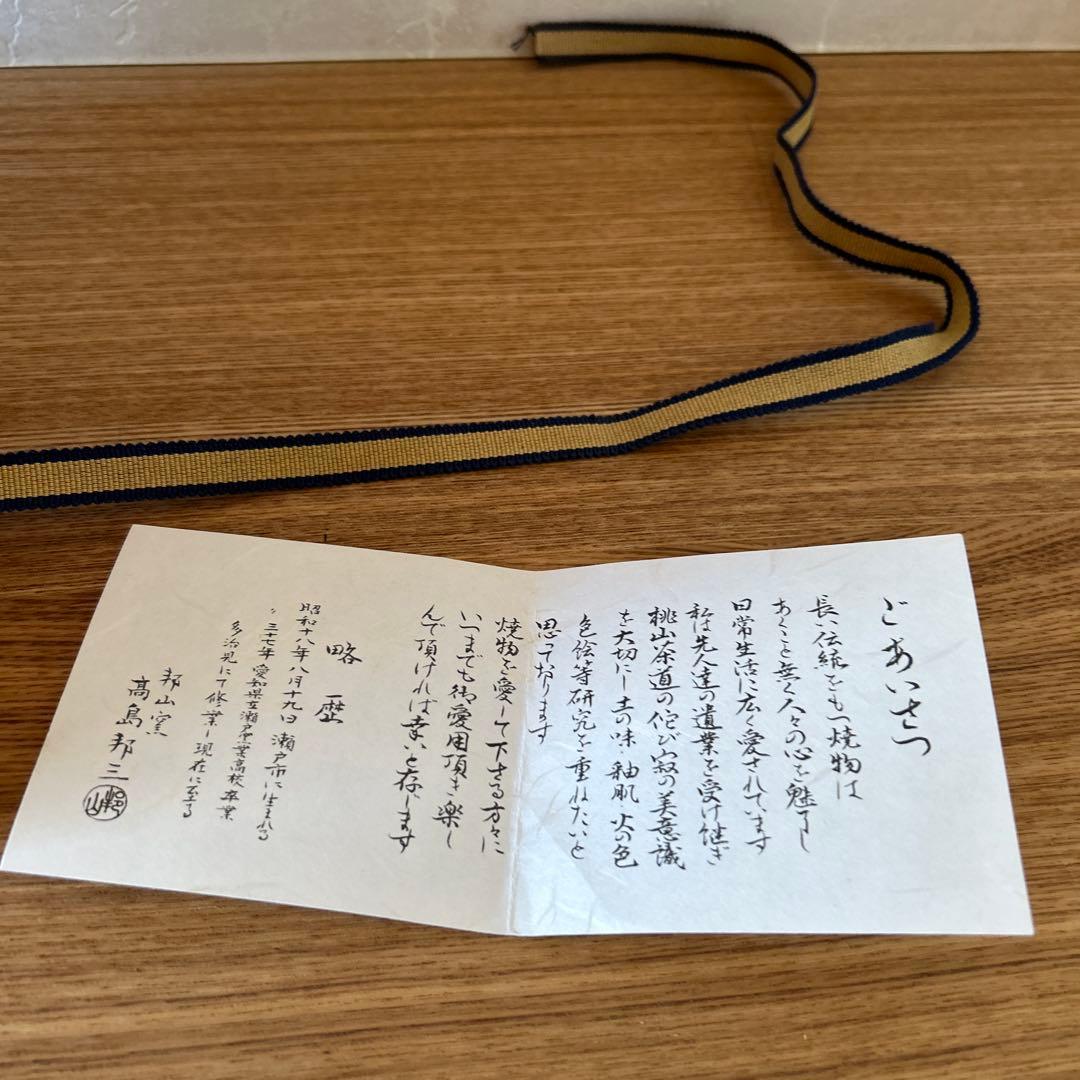 ごあいさつ
長い伝統をもつ焼物は
あくこと無く人々の心を魅了し
日常生活に広く愛されています
私は先人達の遺業を受け継ぎ
桃山茶道の侘び寂の美意識
を大切にし土の味・釉肌 火の色
色絵等研究を重ねたいと
思っております
焼物を愛して下さる方々に
いつまでも御愛用頂き楽し
んで頂ければ幸いと存じます
略歴
昭和十八年八月十九日 瀬戸市に生まれる
〃 三十七年 愛知県立瀬戸窯業高校卒業
多治見にて修業し現在に至る
邦山窯
高島邦三